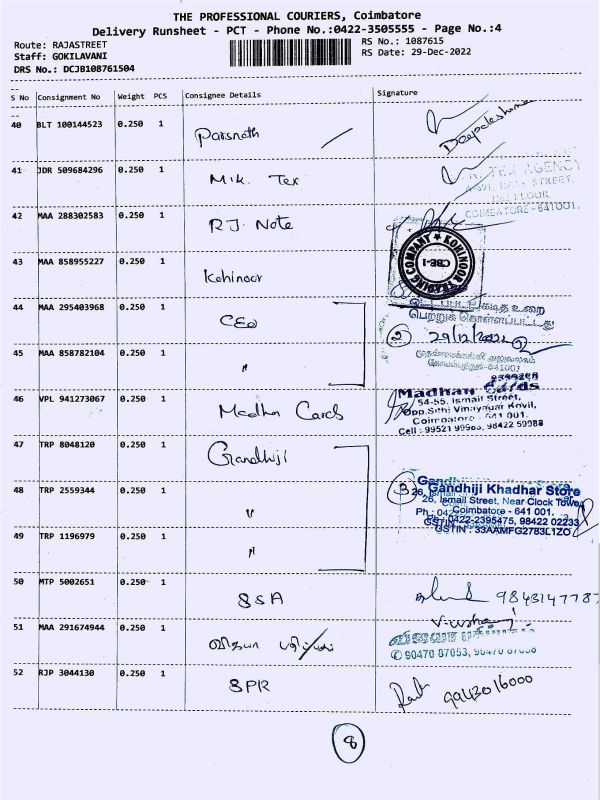 THE PROFESSIONAL COURIERS, Coimbatore
Delivery Runsheet - PCT - Phone No.:0422-3505555 - Page No.:4
Route: RAJASTREET
RS No.: 1087615
Staff: GOKILAVANI
RS Date: 29-Dec-2022
DRS No.: DCJB108761504
S No Consignment No Weight PCS Consignee Details Signature
40 BLT 100144523 0.250 1 Parsnath Deepalakshmi
41 JDR 509684296 0.250 1 M.K. Tex
TEX AGENCY
STREET,
FLOOR
COIMBATORE-641001.
42 MAA 288302583 0.250 1 R.J. Note
43 MAA 858955227 0.250 1 Kohinoor
KOHINOOR TRADING COMPANY
CBE-1
44 MAA 295403968 0.250 1 CEO
உறை
பெற்றுக் கொள்ளப்பட்டது
2 29/12/2022
45 MAA 858782104 0.250 1 "
முதன்மைக்கல்வி அலுவலகம்
கோயம்புத்தூர்-641001
46 VPL 941273067 0.250 1 Madhan Cards
2399298
Madhan Cards
54-55, Ismail Street,
Opp.Sithi Vinayagar Kovil,
Coimbatore - 641 001.
Cell : 99521 99963, 98422 59988
47 TRP 8048120 0.250 1 Gandhiji
48 TRP 2559344 0.250 1 "
3 Gandhiji Khadhar Store
26, Ismail Street, Near Clock Tower
Coimbatore - 641 001.
Ph: 0422-2395475, 98422 02233
GSTIN : 33AAMFG2783L1ZO
49 TRP 1196979 0.250 1 "
50 MTP 5002651 0.250 1 SSA
51 MAA 291674944 0.250 1 விஜயா பதிப்பகம்
விஜயா பதிப்பகம்
✆ 90470 87053,
52 RJP 3044130 0.250 1 SPR 9943016000
8